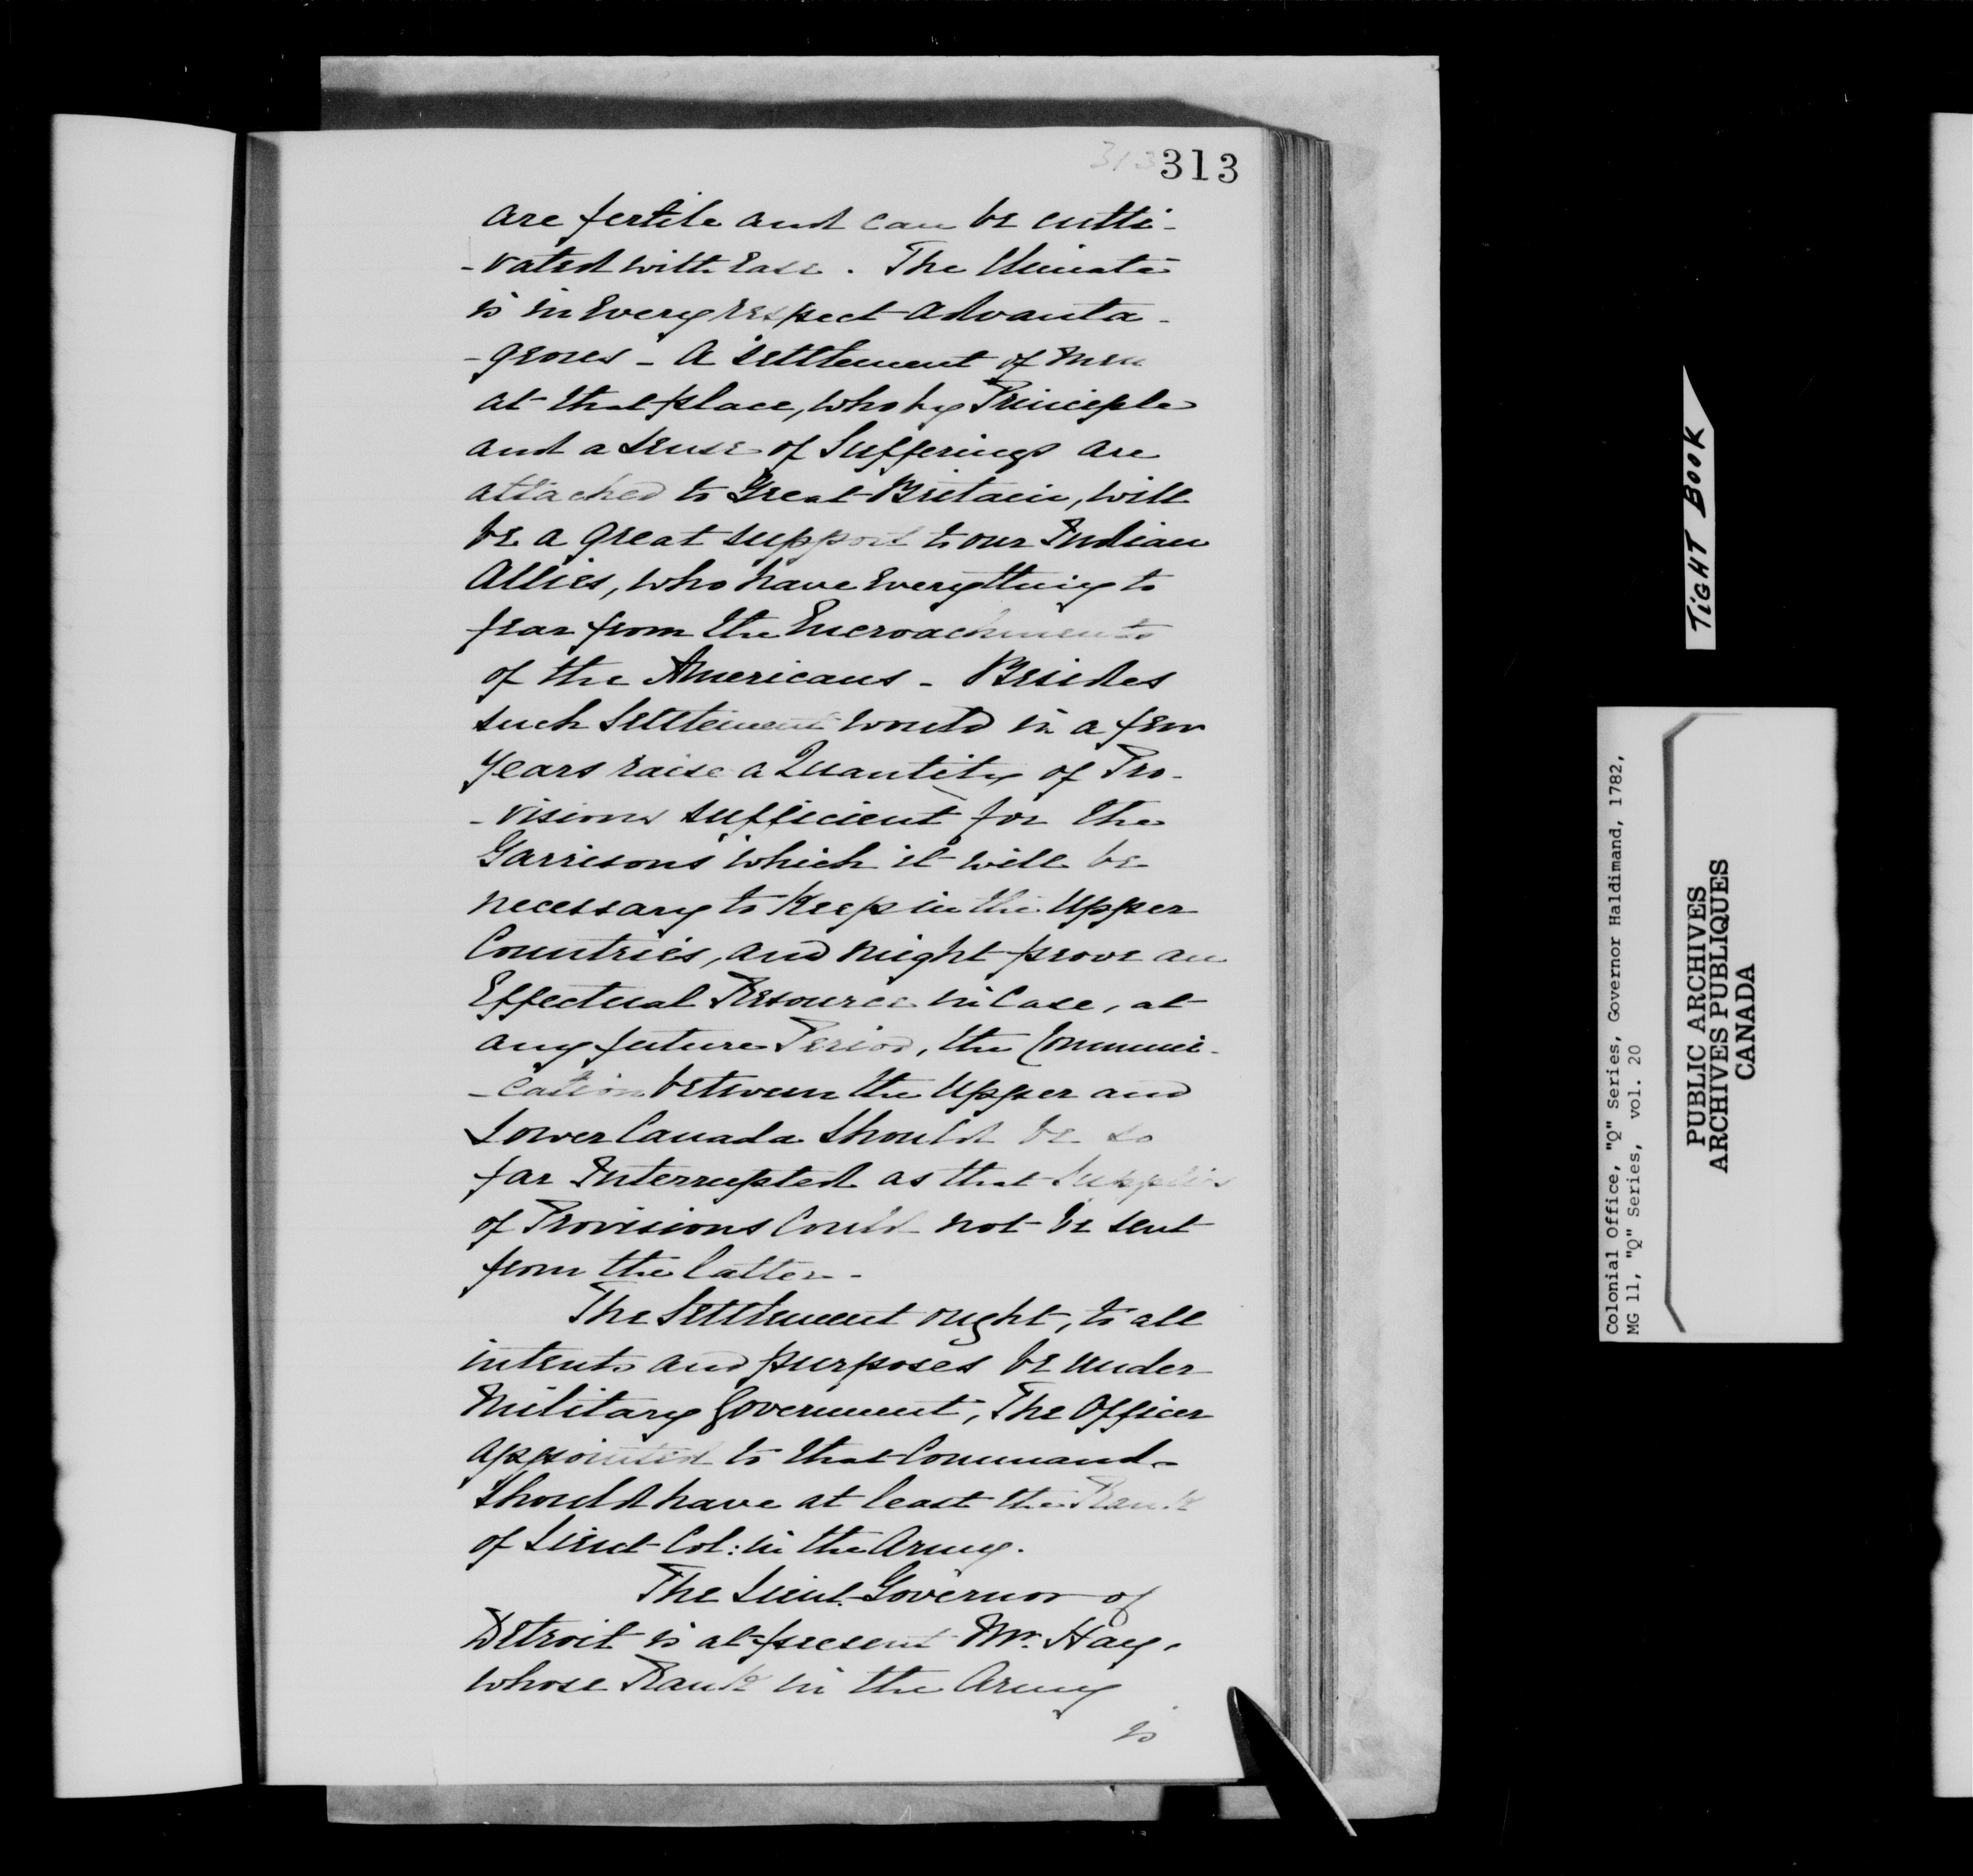 313 313
are fertile and can be culti-
-vated with Ease. The Climate
is in Every respect advanta-
-geous - A settlement of Men
at that place, who by Principle
and a sense of Sufferings are
attached to Great Britain, will
be a great support to our Indian
Allies, who have Everything to
fear from the Encroachments
of the Americans - Besides
such Settlement would in a few
years raise a Quantity of Pro-
-visions sufficient for the
Garrisons which it will be
necessary to Keep in the Upper
Countries, and might prove an
Effectual Resource in Case, at
any future Period, the Communi-
-cation between the Upper and
Lower Canada should be so
far Interrupted as that Supplies
of Provisions Could not be sent
from the latter -
The Settlement ought, to all
intents and purposes be under
Military Government; The Officer
appointed to that Command
should have at least the Rank
of Lieut Col: in the Army.
The Lieut. Governor of
Detroit is at present Mr. Hay,
whose Rank in the Army
is
TIGHT BOOK
Colonial Office, "Q" Series, Governor Haldimand, 1782,
MG 11, "Q" Series, vol. 20
PUBLIC ARCHIVES
ARCHIVES PUBLIQUES
CANADA